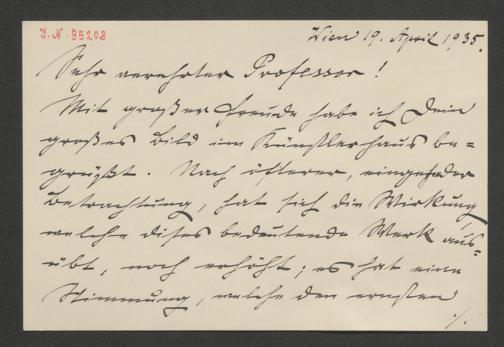 J.N. 35208
Wien 19. April 1935.
Sehr verehrter Professor!
Mit großer Freude habe ich Dein
großes Bild im Künstlerhaus be=
grüßt. Nach öfterer, eingehender
Betrachtung, hat sich die Wirkung
welche dises bedeutende Werk aus=
übt, noch erhöht; es hat eine
Stimmung, welche den ernsten
./.